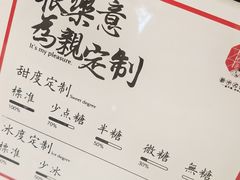 很樂意
為親定制
It's my pleasure.
甜度定制 Sweet degree
標准 少点糖 半糖 微糖 無糖
100% 70% 50% 30%
冰度定制 Ice degree
標准 少冰